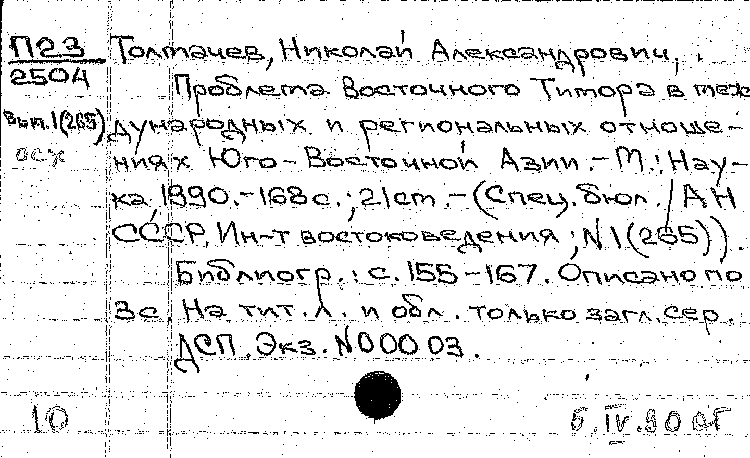 П23 Толмачев, Николай Александрович.
2504 Проблема Восточного Тимора в меж
Вып.1(265) дународных и региональных отноше-
осх ниях Юго-Восточной Азии.-М.:Нау-
ка, 1990.-168с.; 21см.-(Спец.бюл./АН
СССР, Ин-т востоковедения; N1(265)).
Библиогр.: с. 155-167. Описано по
3с. На тит. л. и обл. только загл. сер.
ДСП. Экз. N00003.
10 5.IV.90